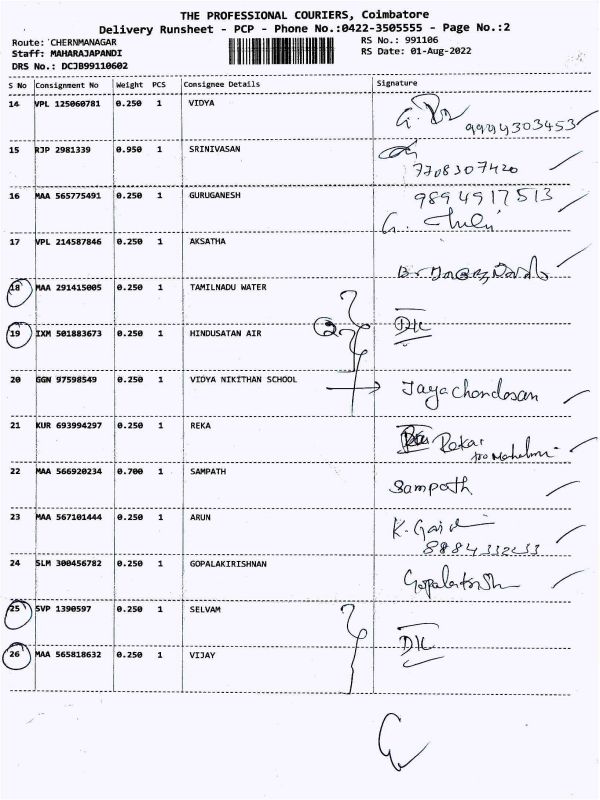 THE PROFESSIONAL COURIERS, Coimbatore
Delivery Runsheet - PCP - Phone No.:0422-3505555 - Page No.:2
Route: CHERNMANAGAR
RS No.: 991106
Staff: MAHARAJAPANDI
RS Date: 01-Aug-2022
DRS No.: DCJB99110602
S No Consignment No Weight PCS Consignee Details Signature
14 VPL 125060781 0.250 1 VIDYA
9994303453
15 RJP 2981339 0.950 1 SRINIVASAN
7708307420
16 MAA 565775491 0.250 1 GURUGANESH 9894917513
17 VPL 214587846 0.250 1 AKSATHA
18 MAA 291415005 0.250 1 TAMILNADU WATER
19 IXM 501883673 0.250 1 HINDUSATAN AIR DIL
20 GGN 97598549 0.250 1 VIDYA NIKITHAN SCHOOL Jayachondosan
21 KUR 693994297 0.250 1 REKA Rekar
22 MAA 566920234 0.700 1 SAMPATH Sampath
23 MAA 567101444 0.250 1 ARUN
24 SLM 300456782 0.250 1 GOPALAKIRISHNAN
25 SVP 1390597 0.250 1 SELVAM
26 MAA 565818632 0.250 1 VIJAY DIL